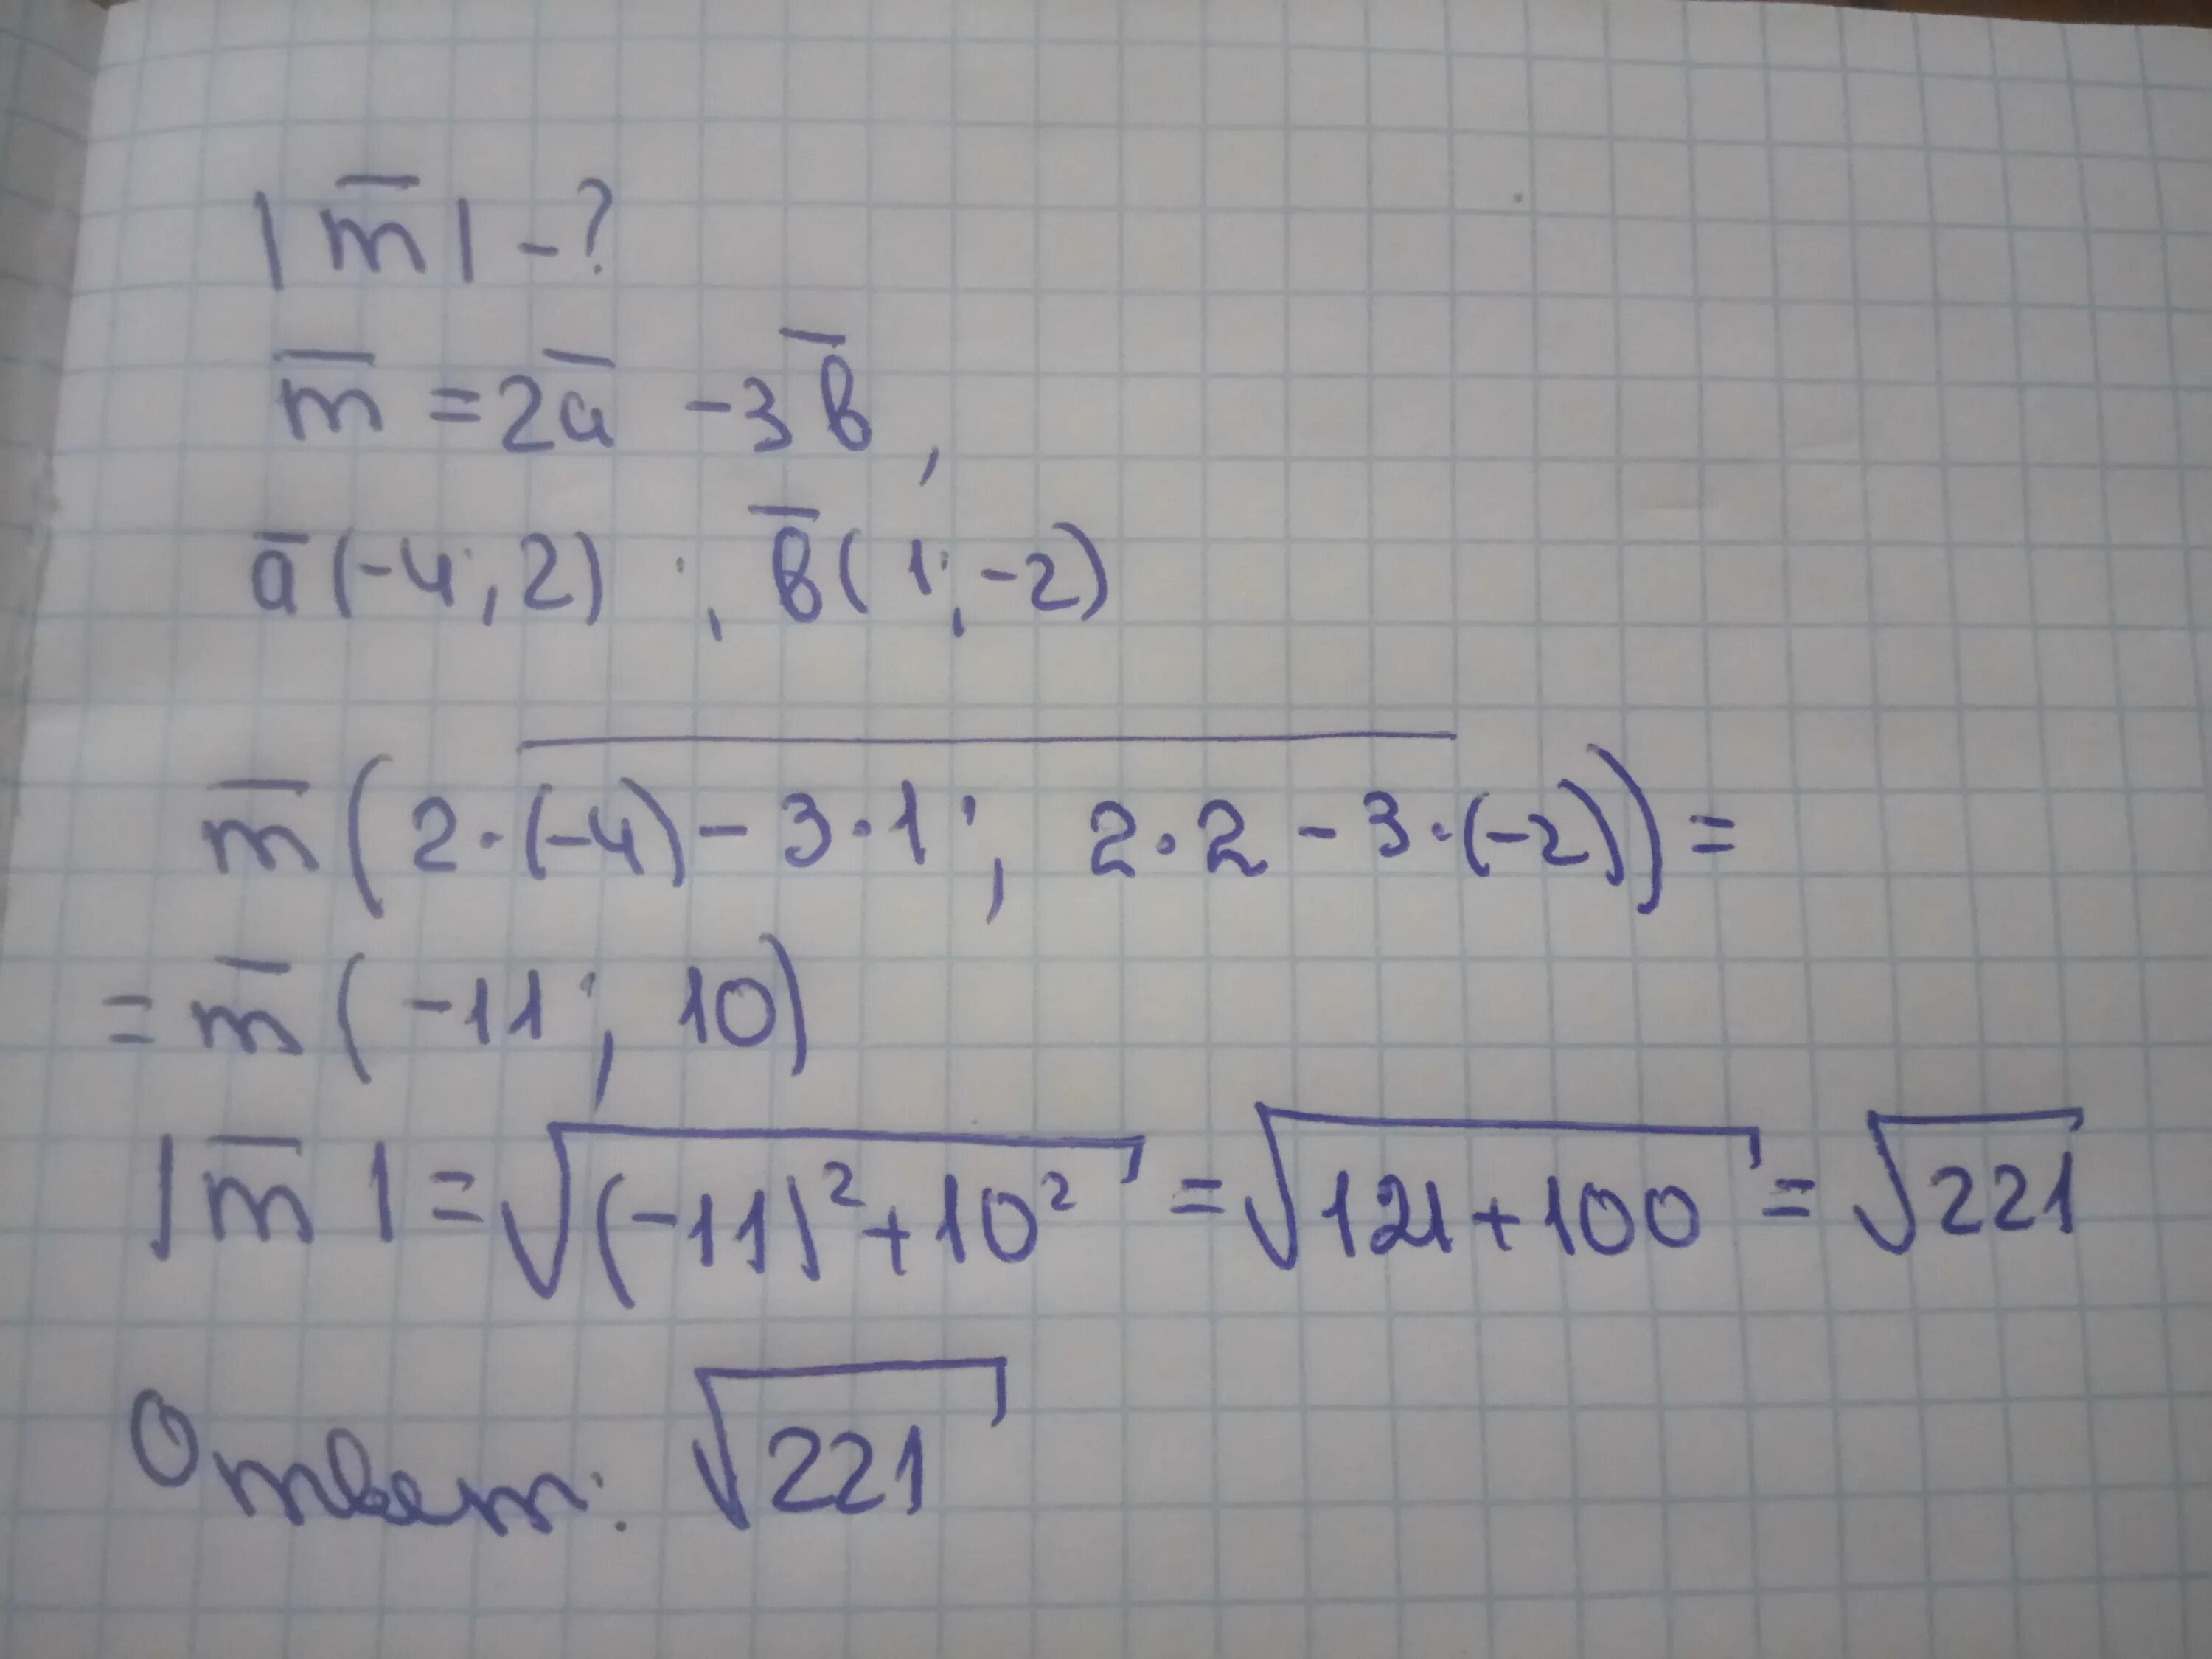 |m̅| - ?
m̅ = 2a̅ - 3b̅,
a̅(-4; 2) ; b̅(1; -2)
m̅(2·(-4) - 3·1; 2·2 - 3·(-2)) =
= m̅(-11; 10)
|m̅| = √((-11)² + 10²) = √(121 + 100) = √221
Ответ: √221